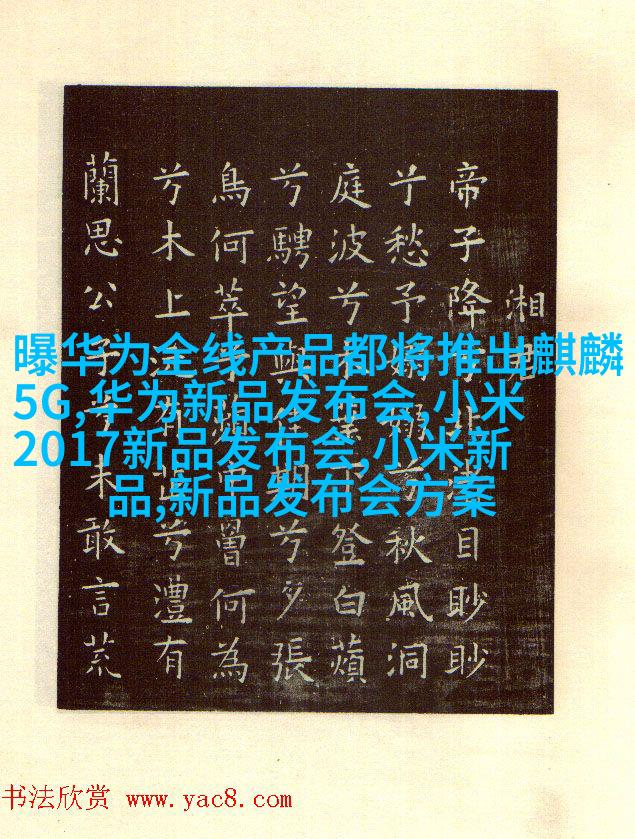 曝华为全线产品都将推出麒麟
5G,华为新品发布会,小米
2017新品发布会,小米新
品,新品发布会方案
湘
帝子降兮北渚目眇眇
兮愁予嫋嫋兮秋風洞
庭波兮木葉下登白蘋
兮騁望與佳期兮夕張
鳥何萃兮蘋中罾何為
兮木上沅有芷兮澧有
蘭思公子兮未敢言荒
书法欣赏 www.yac8.com